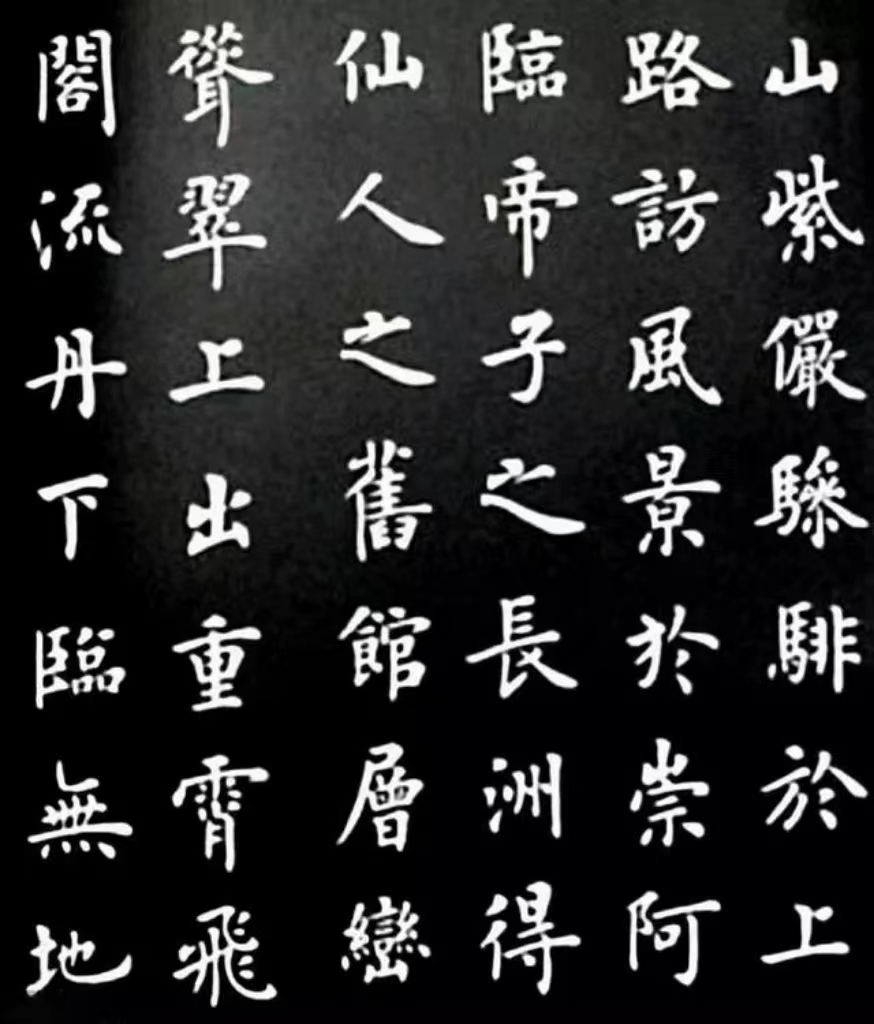 山紫儼驂騑於上
路訪風景於崇阿
臨帝子之長洲得
仙人之舊館層巒
聳翠上出重霄飛
閣流丹下臨無地